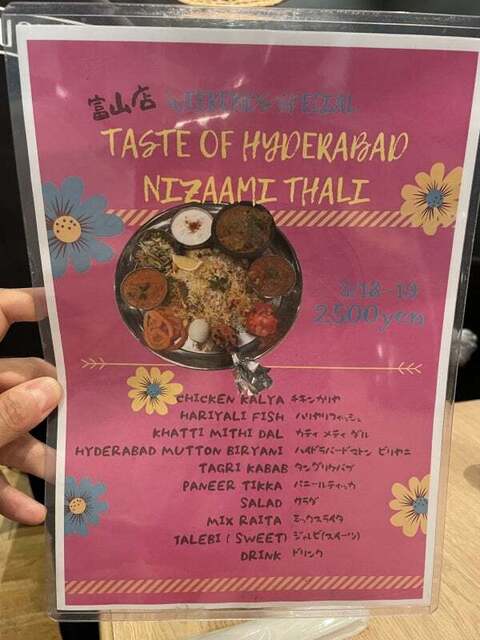 富山店 WEEKENDS SPECIAL
TASTE OF HYDERABAD
NIZAAMI THALI
3/18-19
2,500yen
CHICKEN KALYA チキンカリヤ
HARIYALI FISH ハリヤリフィッシュ
KHATTI MITHI DAL カティ メティ ダル
HYDERABAD MUTTON BIRYANI ハイドラバードマトン ビリヤニ
TAGRI KABAB タングリカバブ
PANEER TIKKA パニールティッカ
SALAD サラダ
MIX RAITA ミックスライタ
TALEBI ( SWEET) ジャレビ(スイーツ)
DRINK ドリンク